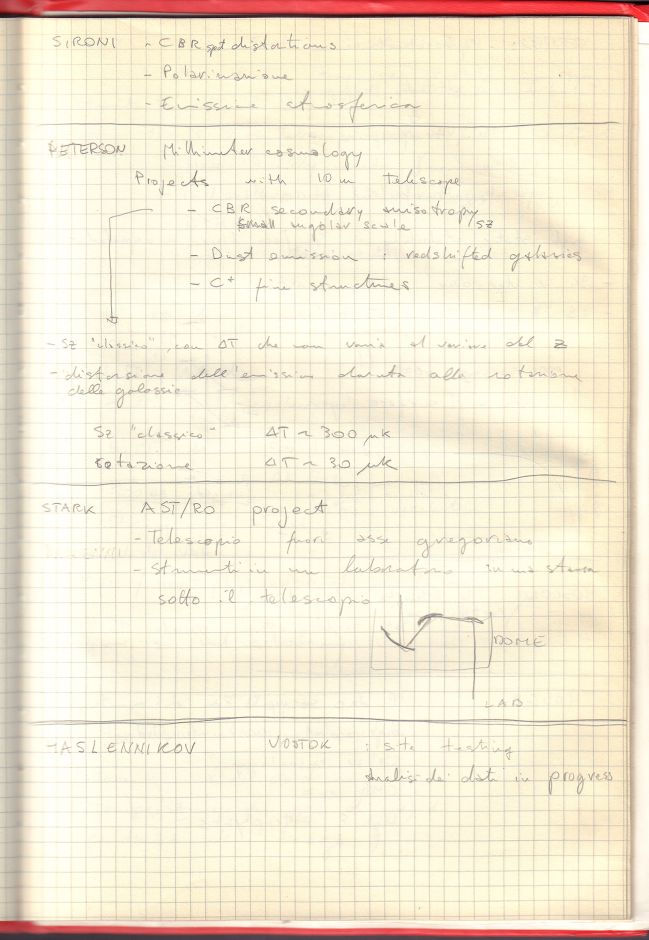 SIRONI - CBR spt distortions
- Polarizzazione
- Emissione atmosferica
PETERSON Millimeter cosmology
Projects with 10 m Telescope
- CBR secondary anisotropy
small angolar scale /SZ
- Dust emission : redshifted galaxies
- C+ fine structures
- SZ "classico", con ΔT che non varia al variare del z
- distorsione dell'emissione dovuta alla rotazione
delle galassie
SZ "classico" ΔT ~ 300 μK
Rotazione ΔT ~ 30 μK
STARK AST/RO project
- Telescopio fuori asse gregoriano
- Strumenti in un laboratorio in una stanza
sotto il telescopio
DOME
LAB
MASLENNIKOV VOSTOK : site testing
Analisi dei dati in progress